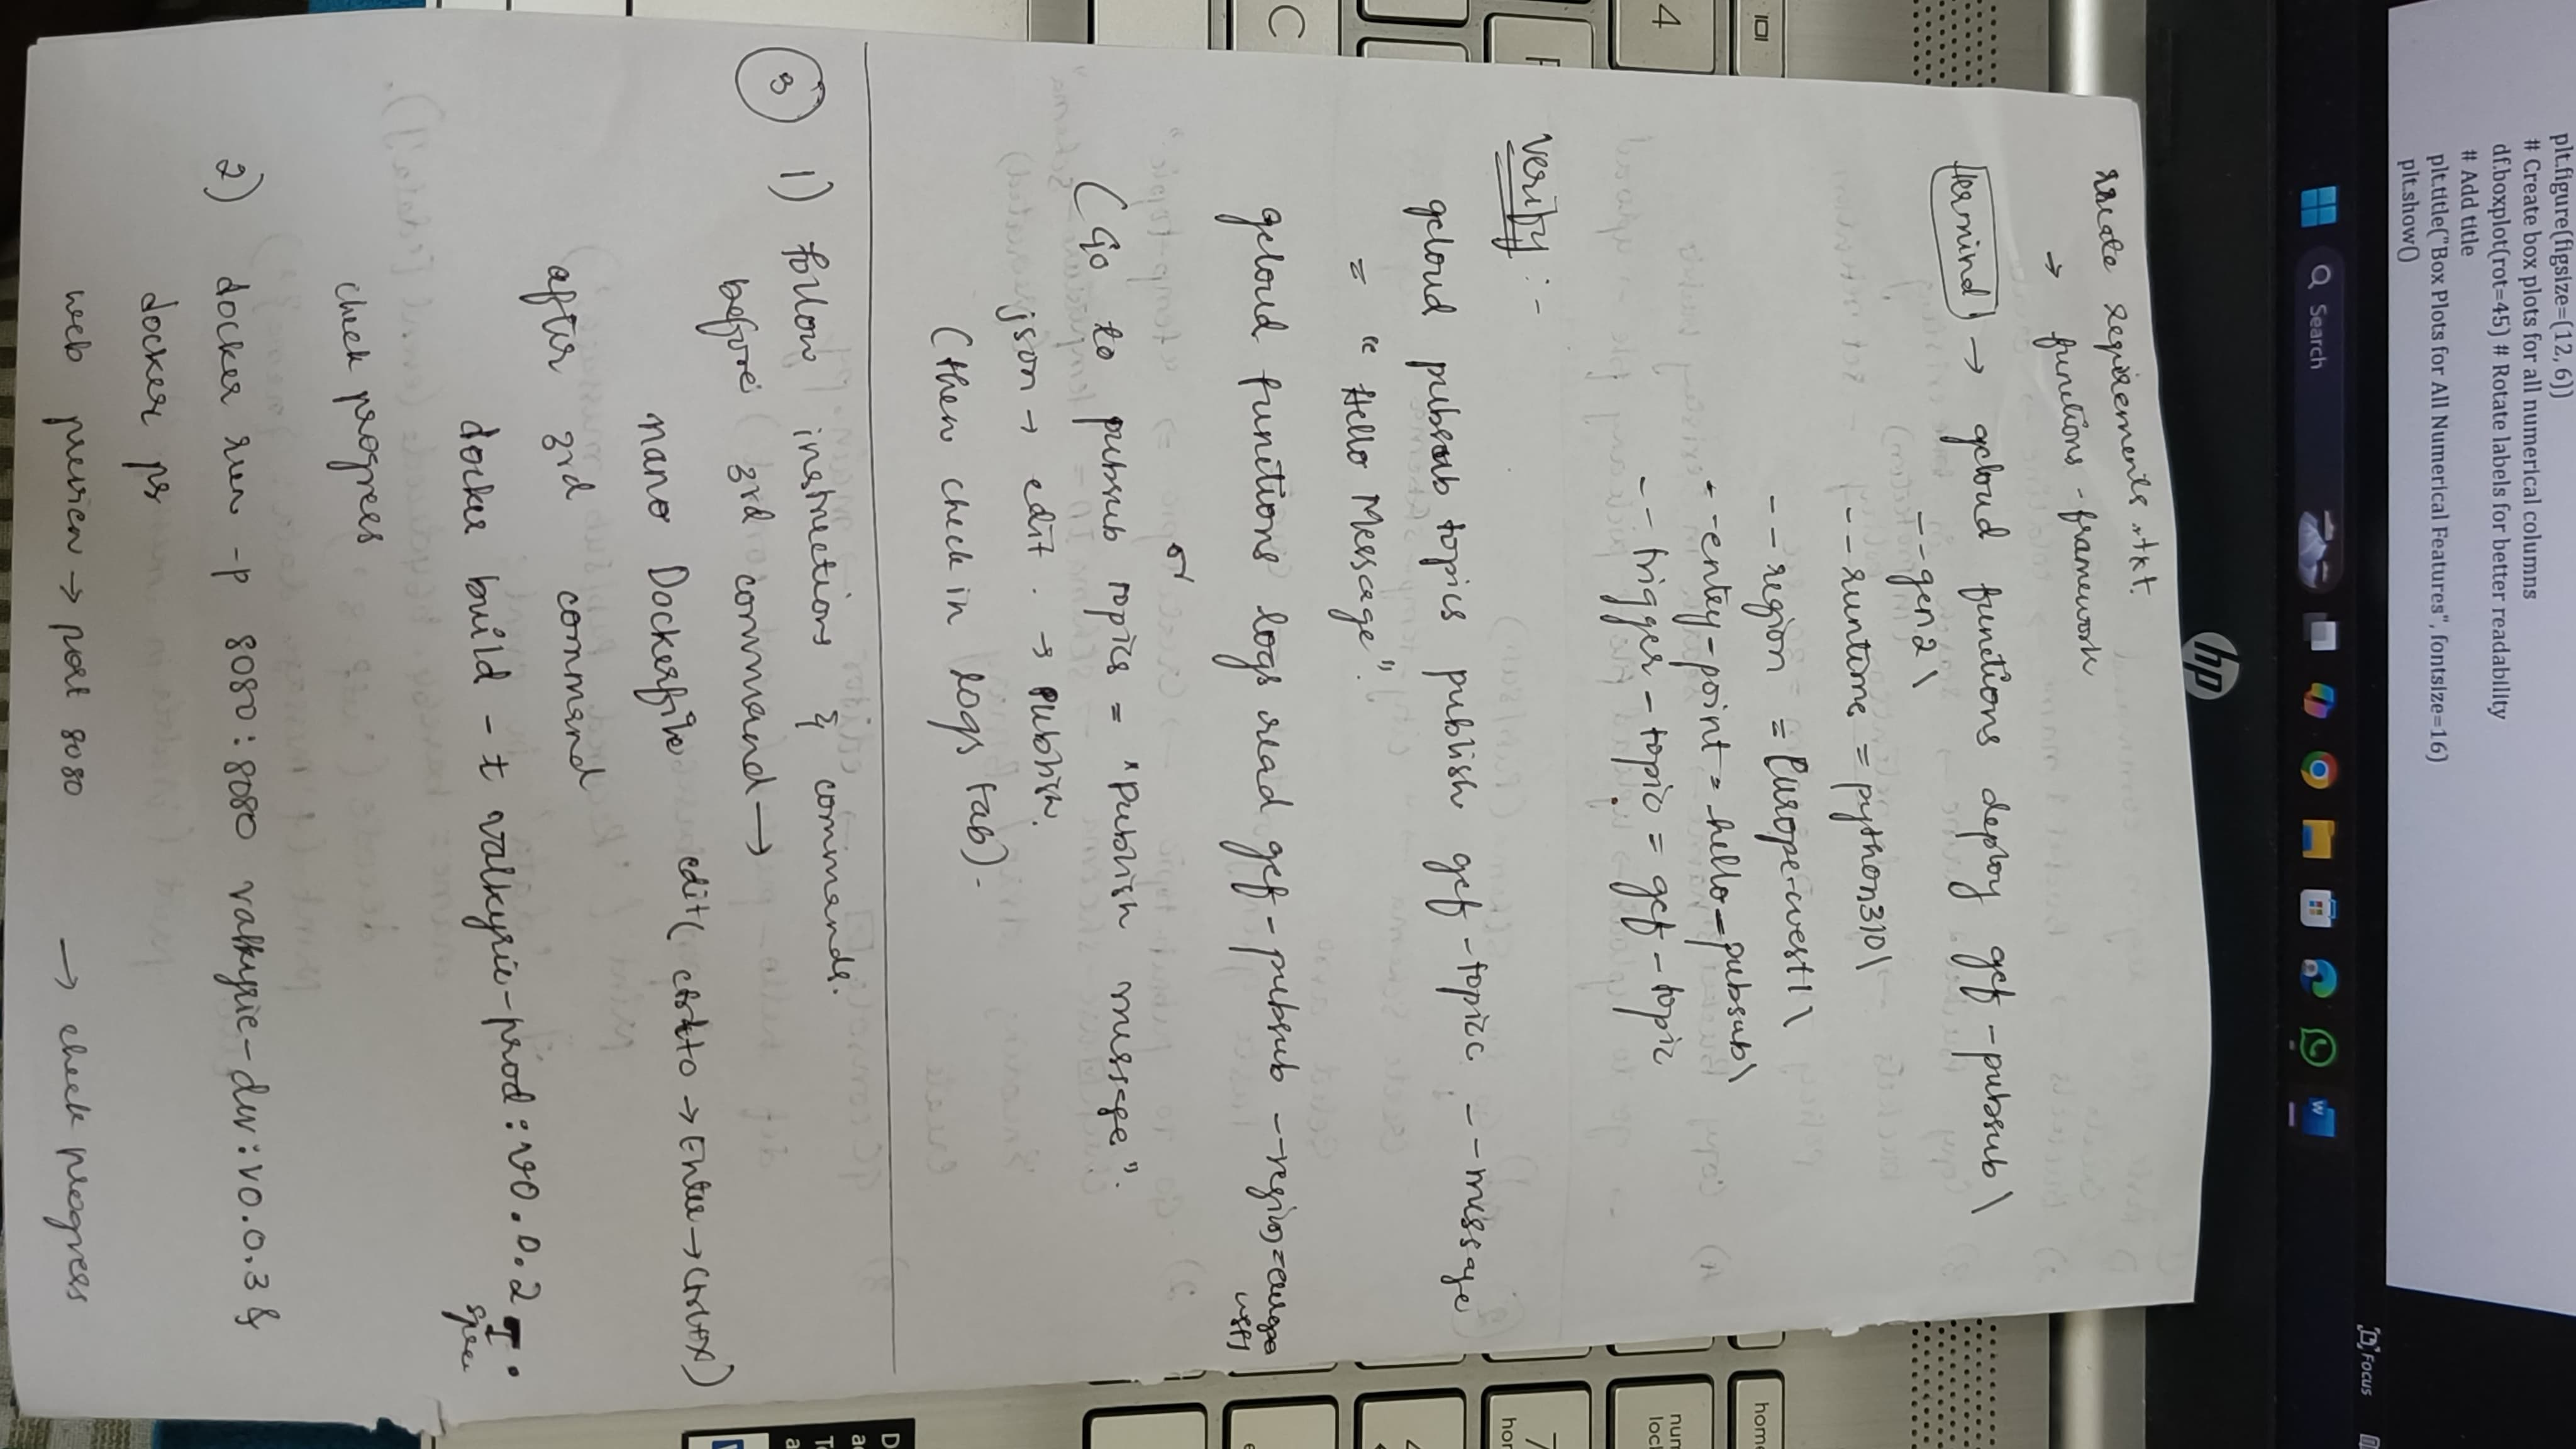 plt.figure(figsize=(12, 6))
# Create box plots for all numerical columns
df.boxplot(rot=45) # Rotate labels for better readability
# Add title
plt.title("Box Plots for All Numerical Features", fontsize=16)
plt.show()
Search
Focus
hp
create requirements.txt.
→ functions-framework
→ gcloud functions deploy gcf-pubsub\
--gen2\
--runtime=python310\
--region = europe-west1\
--entry-point=hello-pubsub\
--trigger-topic=gcf-topic
Verify :-
gcloud pubsub topics publish gcf-topic --message
= "Hello Message".
gcloud functions logs read gcf-pubsub --region=europe
west1
or
(Go to pubsub topics = "publish message".
json → edit. → publish.
(then check in logs tab).
3 1) follow instructions & commands.
before 3rd command →
nano Dockerfile edit( → Enter → Ctrl+X)
after 3rd command
docker build -t valkyrie-prod:v0.0.2 .
space
check progress
2) docker run -p 8080:8080 valkyrie-dev:v0.0.3 &
docker ps
web preview → port 8080 → check progress
4
C
num
lock
home
7